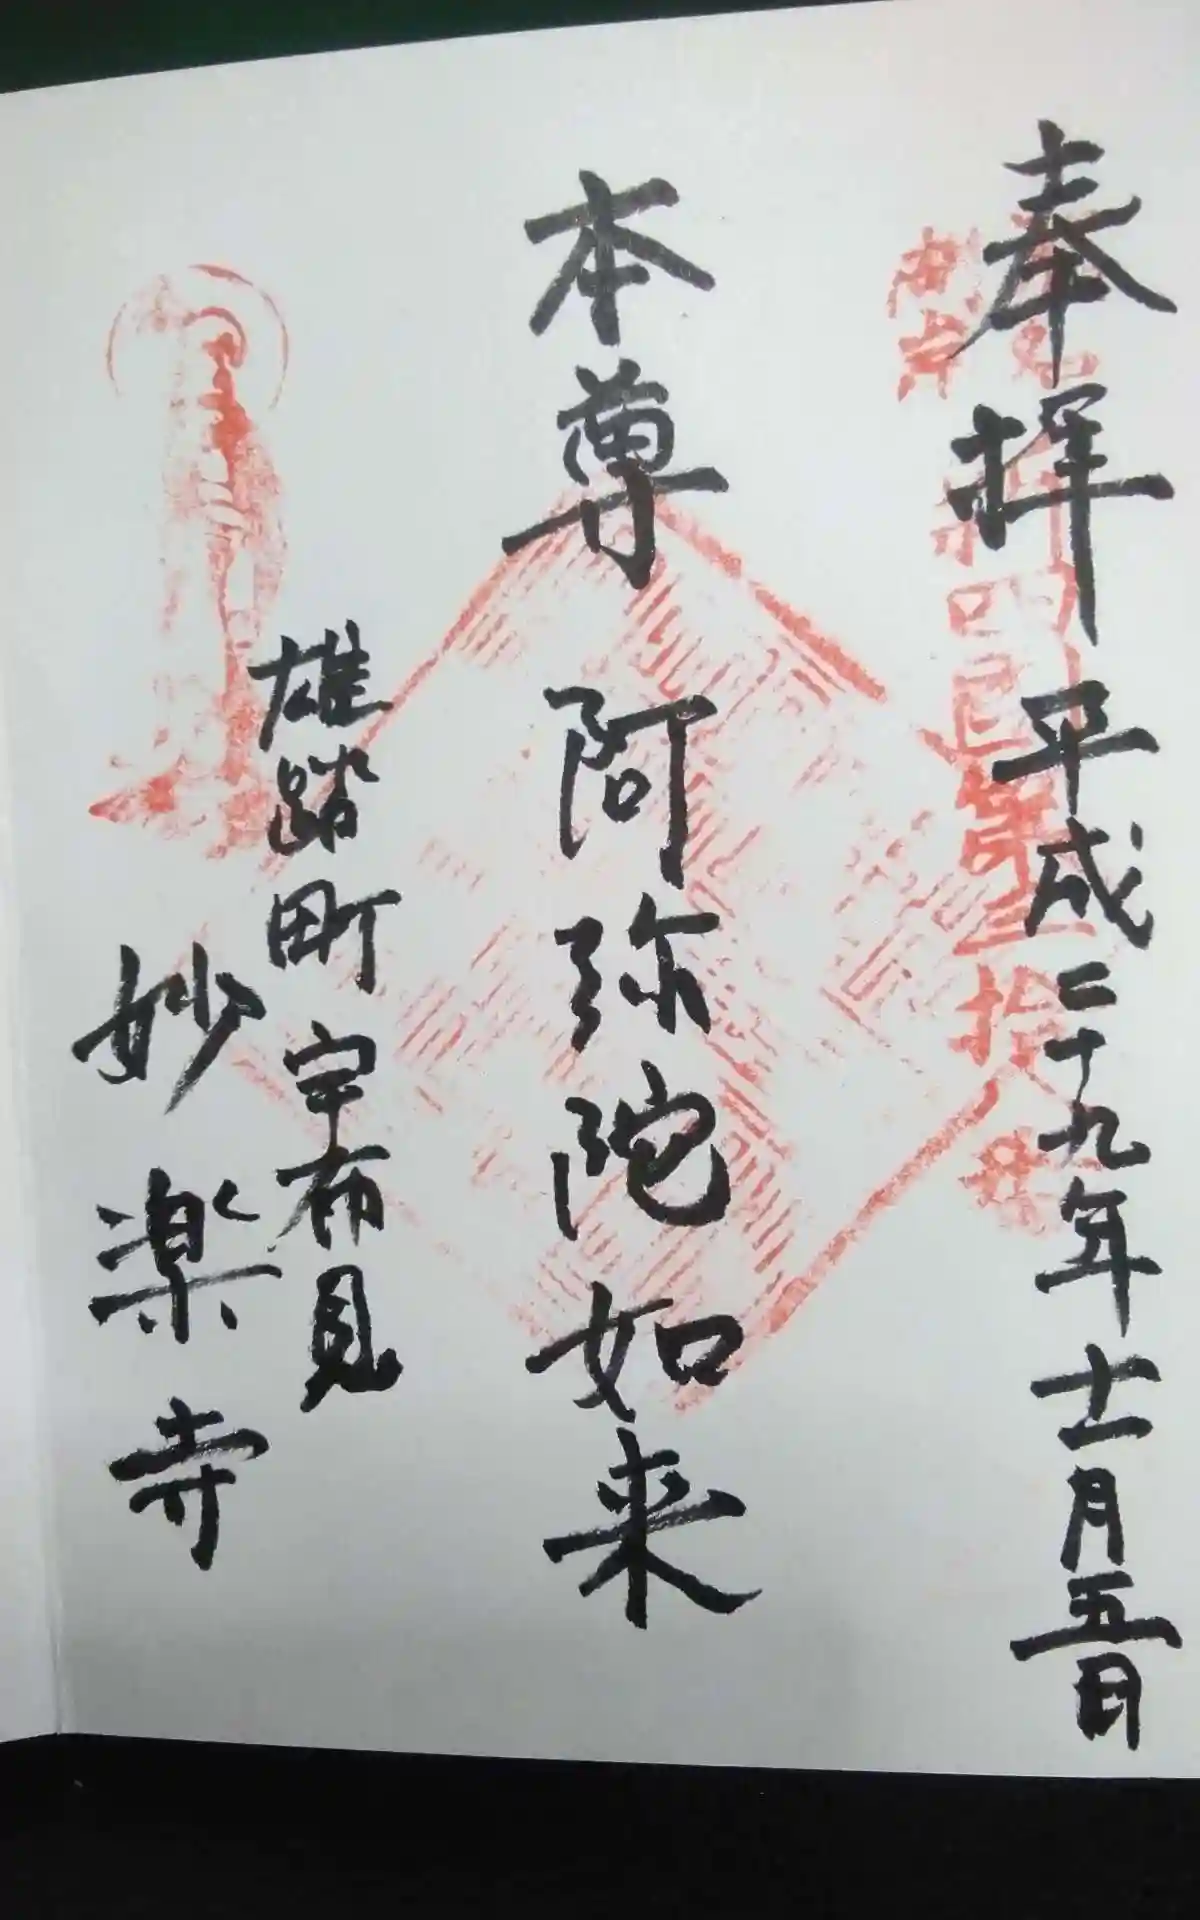 奉拝 平成二十九年十一月五日
本尊 阿弥陀如来
雄踏町 宇布見
妙楽寺